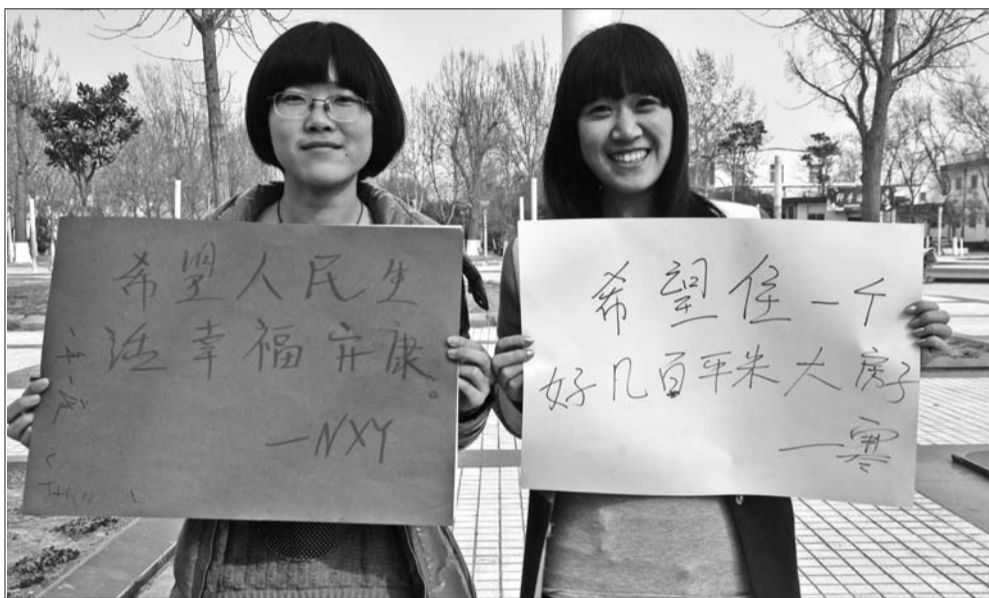 希望人民生
活幸福安康。
—NXY
希望住一个
好几百平米大房子
—寒